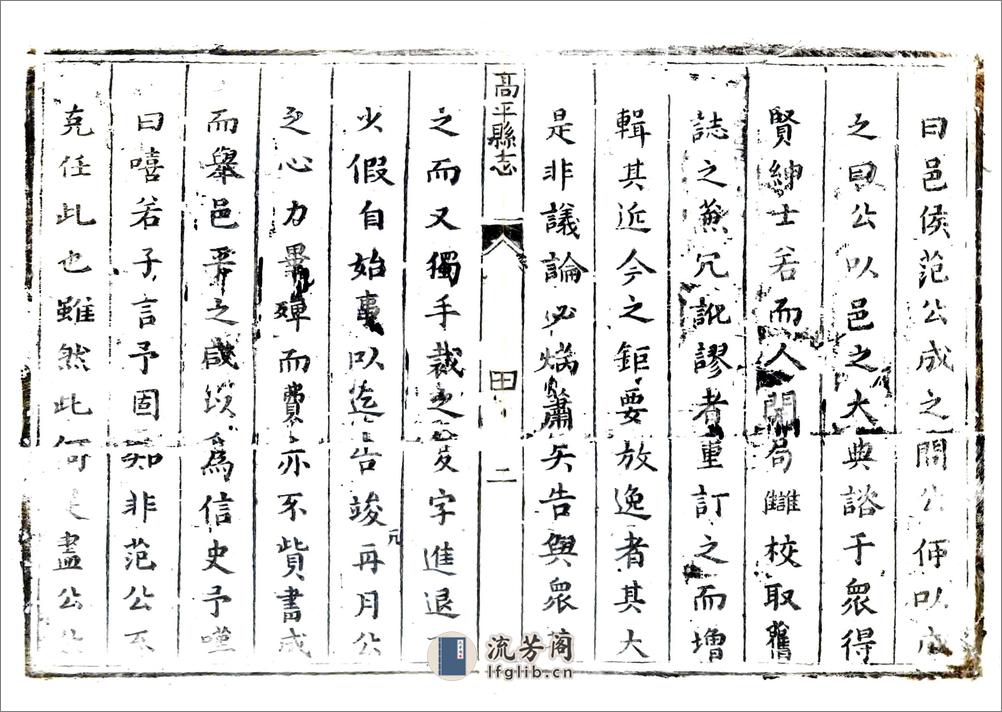 曰邑侯范公成之問公何以成
之曰公以邑之大典諮于衆得
賢紳士若而人開局讎校取舊
誌之蕪冗訛謬者重訂之而增
輯其近今之鉅要放逸者其大
是非議論必焫蕭矢告與衆
高平縣志 田 二
之而又獨手裁之 字進退
少假自始事以迄告竣再月公
之心力畢殫而費亦不貲書成
而舉邑 之咸 為信史予嘆
曰嘻若子言予固知非范公不
克任此也雖然此何 盡公
流芳阁
lfglib.cn